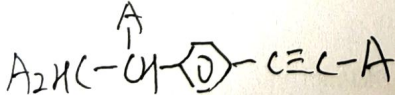 A
A₂HC-CH-⌬-C≡C-A